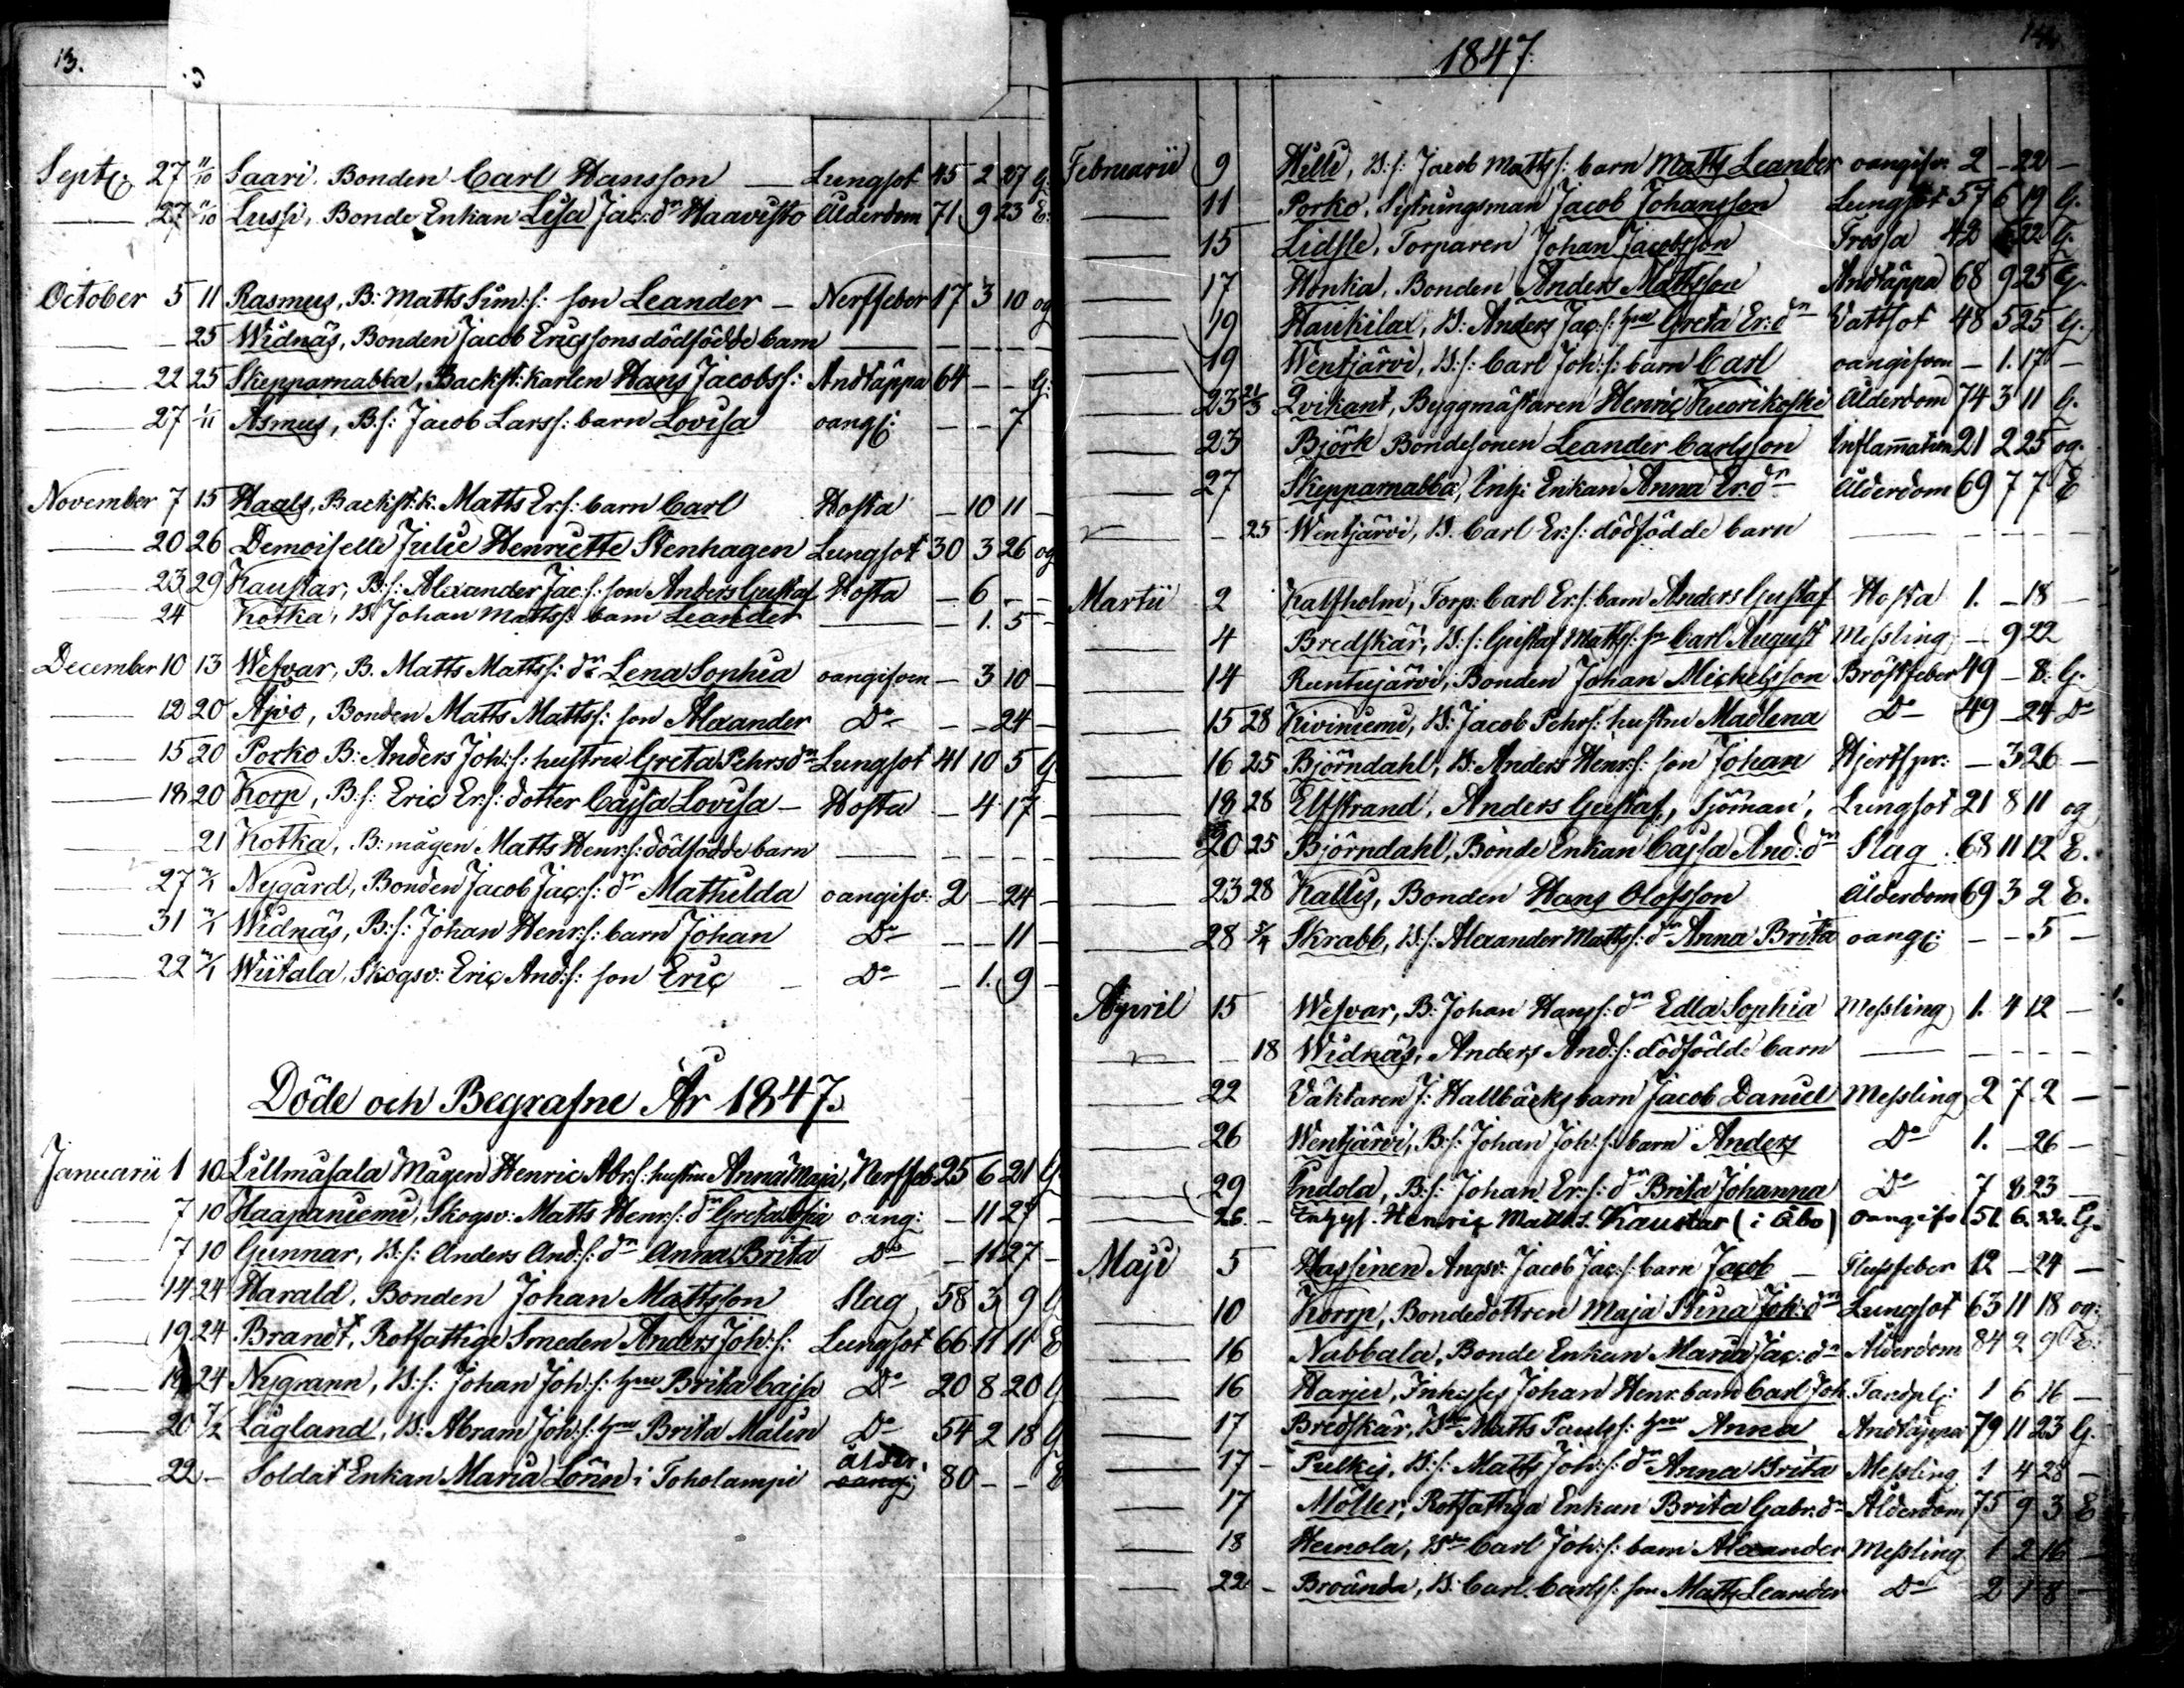 13.
Septr: 27 11/10 Saari, Bonden Carl Hansson — Lungsot 45 2 27 G:
— 27 11/10 Lussi, Bonde Enkan Lisa Jac: dr Haavisto Ålderdom 71 9 23 E:
October 5 11 Rasmus, B: Matts Sim: s: son Leander — Nerffeber 17 3 10 og
— 25 Widnäs, Bonden Jacob Ericssons dödfödde barn — — — —
— 22 25 Skepparnabba, Backst: karlen Hans Jacobs s: Andtäppa 64 — — G:
— 27 1/11 Asmus, B.s: Jacob Lars s: barn Lovisa oang: — — 7
November 7 15 Haals, Backst. k. Matts Er: s: barn Carl Hosta — 10 11 —
— 20 26 Demoiselle Julie Henriette Stenhagen Lungsot 30 3 26 og
— 23 29 Kaustar, B: s: Alexander Jac: s: son Anders Gustaf Hosta — 6 — —
— 24 Kotka, B. Johan Matts s: barn Leander — — 1. 5 —
December 10 13 Wefvar, B. Matts Matts s: dr Lena Sophia oangifven — 3 10 —
— 12 20 Ajvo, Bonden Matts Matts s: son Alexander Do — — 24 —
— 15 20 Porko B: Anders Joh: s: hustru Greta Pehrs dr Lungsot 41 10 5 G
— 18 20 Korp, B.s: Eric Er: s: dotter Cajsa Lovisa — Hosta — 4 17 —
— 21 Kotka, B: mågen Matts Henr: s: dödfödde barn — — — —
— 27 Nygård, Bonden Jacob Jac: s: dr Mathilda oangifv: 2 — 24 —
— 31 Widnäs, B: s: Johan Henr: s: barn Johan Do — — 11 —
— 22 Wiitala, Skogsv: Eric And: s: son Eric — Do — 1. 9 —
Döde och Begrafne År 1847.
Januarii 1 10 Lillmåsala Mågen Henric Abr: s: hustru Anna Maja, Nerffeb: 25 6 21 G.
— 7 10 Haapaniemi, Skogsv: Matts Henr: s: dr Greta oang: — 11 27 —
— 7 10 Gunnar, B: s: Anders And: s: dr Anna Brita Do — 11 27 —
— 14 24 Harald, Bonden Johan Mattsson Slag 58 3 9 G
— 19 24 Brandt, Rotfattige Smeden Anders Joh: s: Lungsot 66 11 11 E
— 19 24 Nygrann, B: s: Johan Joh: s: hru Brita Cajsa Do 20 8 20 G
— 20 7/2 Lågland, B: Abram Joh: s: hru Brita Malin Do 54 2 18 G
— 22 — Soldat Enkan Maria Lönn i Toholampi ålder. oang: 80 — — E
1847. 144
Februarii 9 Hilli, B: s: Jacob Matts s: barn Matts Leander oangifv. 2 — 22 —
— 11 Porko, Sistningsman Jacob Johansson Lungsot 57 6 19 G.
— 15 Lidsle, Torparen Johan Jacobsson Frossa 42 22 G.
— 17 Honka, Bonden Anders Mattsson Andtäppa 68 9 25 G.
— 19 Haukilax, B: Anders Jac: s: hru Greta Er: dr Vattsot 48 5 25 G.
— 19 Wentjärvi, B: s: Carl Joh: s: barn Carl oangifven — 1. 17 —
— 23 21/3 Qvikant, Byggmästaren Henric Kuorikoski Ålderdom 74 3 11 G.
— 23 Björk Bondesonen Leander Carlsson Inflamation 21 2 25 og.
— 27 Skepparnabba, Inh: Enkan Anna Er: dr Ålderdom 69 7 7 E
— 25 Wentjärvi, B. Carl Er: s: dödfödde barn — — — —
Martii 2 Kalfholm, Torp: Carl Er: s: barn Anders Gustaf Hosta 1. — 18 —
— 4 Bredskär, B: s: Gustaf Matts s: sn Carl August Messling — 9 22
— 14 Runtujärvi, Bonden Johan Michelsson Bröstfeber 49 — 8. G.
— 15 28 Kiviniemi, B: Jacob Pehrs: hustru Madlena Do 49 — 24 Do
— 16 25 Björndahl, B: Anders Henr: s: son Johan Hjertspr: — 3 26 —
— 18 28 Elfstrand, Anders Gustaf, Sjöman, Lungsot 21 8 11 og
— 20 25 Björndahl, Bonde Enkan Cajsa And: dr Slag 68 11 12 E.
— 23 28 Kallis, Bonden Hans Olofsson Ålderdom 69 3 2 E.
— 28 5/4 Skrabb, B: s: Alexander Matts s: dr Anna Brita oang: — — 5 —
April 15 Wefvar, B: Johan Hans s: dr Edla Sophia Messling 1. 4 12 —
— 18 Widnäs, Anders And: s: dödfödde barn — — — —
— 22 Väktaren J: Hallbäcks barn Jacob Daniel Messling 2 7 2 —
— 26 Wentjärvi, B: s: Johan Joh: s: barn Anders Do 1. — 26 —
— 29 Indola, B: s: Johan Er: s: dr Brita Johanna Do 7 8 23 —
— 26 — Inhys. Henric Matts s. Kaustar (i Åbo) oangifv 51. 6. 22. G.
Maji 5 Hassinen Ångsv: Jacob Jac: s: barn Jacob — Flussfeber 12 — 24 —
— 10 Korp, Bondedottren Maja Stina Joh: dr Lungsot 63 11 18 og:
— 16 Nabbala, Bonde Enkan Maria Jac: dr Ålderdom 84 2 9 E:
— 16 Harjei, Inhyses Johan Henr. barn Carl Joh. Tandpl: 1 6 16 —
— 17 Bredskär, Bdn Matts Pauls s: hru Anna Andtäppa 79 11 23 G.
— 17 — Pulkis, B: s: Matts Joh: s: dr Anna Brita Messling 1 4 28 —
— 17 Möller, Rotfattiga Enkan Brita Gabr: dr Ålderdom 75 9 3 E
— 18 Heinola, Bdn Carl Joh: s: barn Alexander Messling 1 2 16 —
— 22 — Broända, B: Carl Carls s: son Matts Leander Do 2 1 8 —